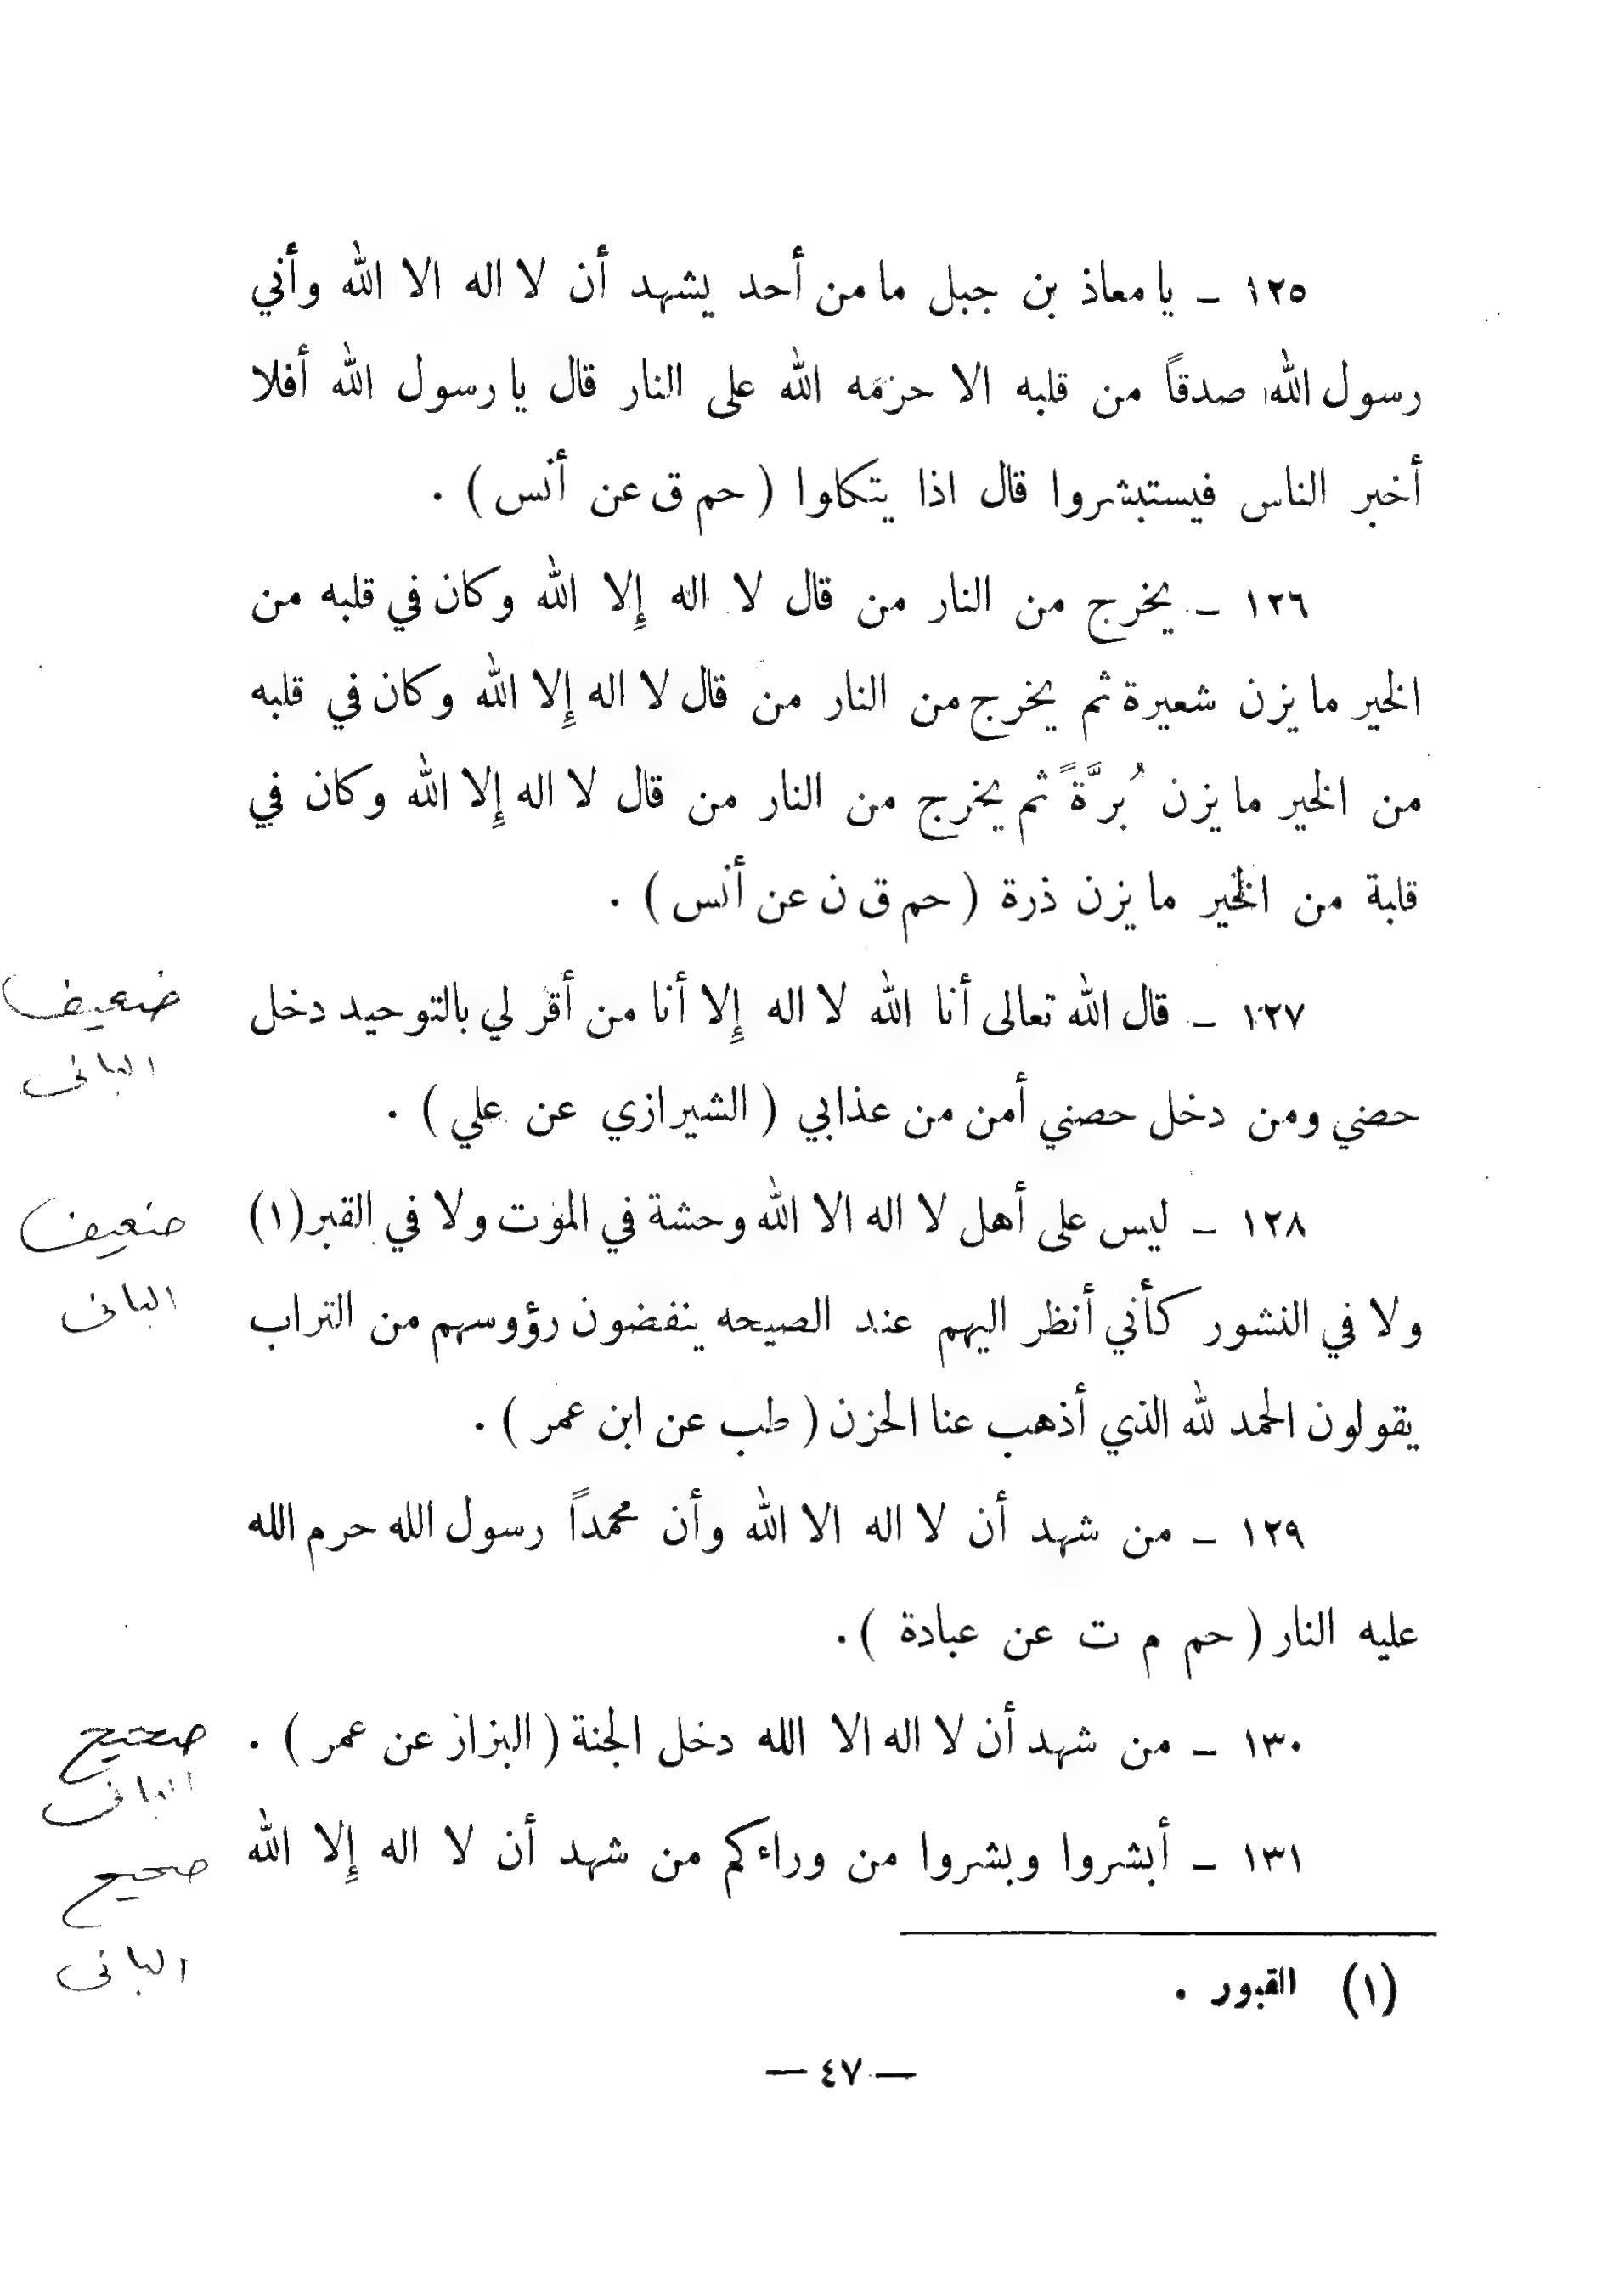 ١٢٥ ـ يا معاذ بن جبل ما من أحد يشهد أن لا اله الا الله وأني
رسول الله صدقاً من قلبه الا حرمه الله على النار قال يا رسول الله أفلا
أخبر الناس فيستبشروا قال اذا يتكلوا ( حم ق عن أنس ) .
١٢٦ ـ يخرج من النار من قال لا اله إلا الله وكان في قلبه من
الخير ما يزن شعيرة ثم يخرج من النار من قال لا اله إلا الله وكان في قلبه
من الخير ما يزن بُرَّةً ثم يخرج من النار من قال لا اله إلا الله وكان في
قلبة من الخير ما يزن ذرة ( حم ق ن عن أنس ) .
١٢٧ ـ قال الله تعالى أنا الله لا اله إلا أنا من أقر لي بالتوحيد دخل
ضعيف
البانى
حضني ومن دخل حصني أمن من عذابي ( الشيرازي عن علي ) .
١٢٨ ـ ليس على أهل لا اله الا الله وحشة في الموت ولا في القبر(١)
ضعيف
البانى
ولا في النشور كأني أنظر اليهم عند الصيحه ينفضون رؤوسهم من التراب
يقولون الحمد لله الذي أذهب عنا الحزن ( طب عن ابن عمر ) .
١٢٩ ـ من شهد أن لا اله الا الله وأن محمداً رسول الله حرم الله
عليه النار ( حم م ت عن عبادة ) .
١٣٠ ـ من شهد أن لا اله الا الله دخل الجنة ( البزاز عن عمر ) .
صحيح
البانى
١٣١ ـ أبشروا وبشروا من وراءكم من شهد أن لا اله إلا الله
صحيح
البانى
(١) القبور .
— ٤٧ —